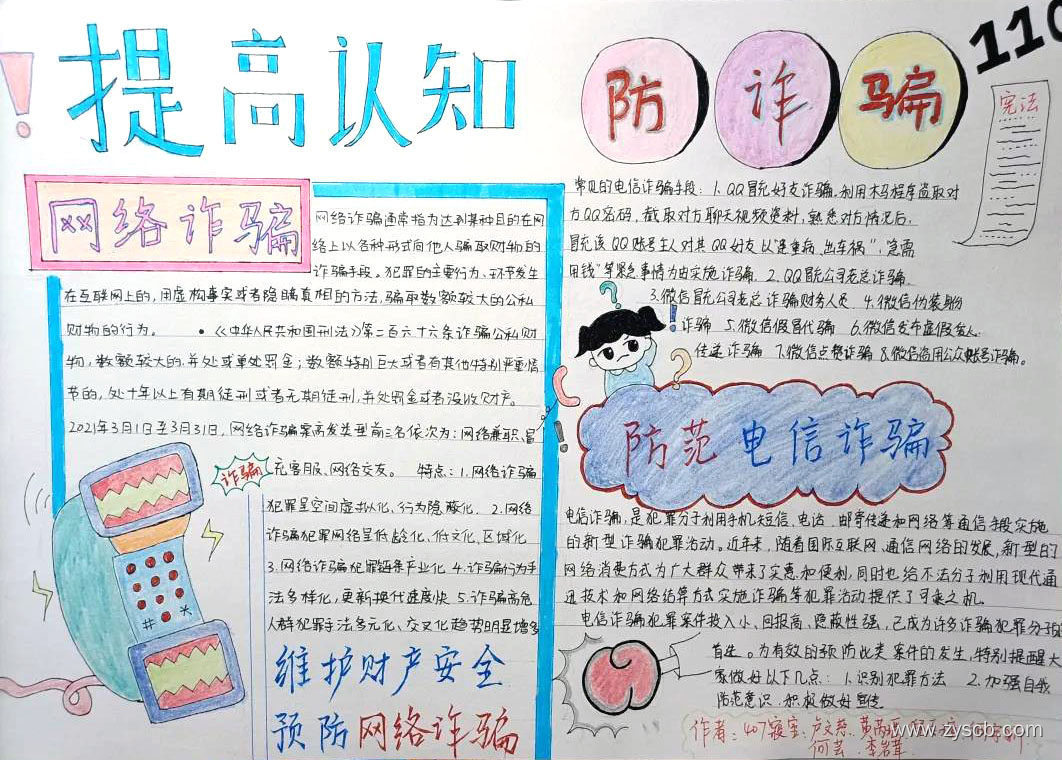 提高认知
防诈骗
110
宪法
网络诈骗
网络诈骗通常指为达到某种目的在网
络上以各种形式向他人骗取财物的
诈骗手段。犯罪的主要行为、环节发生
在互联网上的,用虚构事实或者隐瞒真相的方法,骗取数额较大的公私
财物的行为。 •《中华人民共和国刑法》第二百六十六条诈骗公私财
物,数额较大的,并处或单处罚金;数额特别巨大或者有其他特别严重情
节的,处十年以上有期徒刑或者无期徒刑,并处罚金或者没收财产。
2021年3月1日至3月31日,网络诈骗案高发类型前三名依次为:网络兼职、冒
充客服、网络交友。 特点:1.网络诈骗
犯罪呈空间虚拟化、行为隐蔽化. 2.网络
诈骗犯罪网络呈低龄化、低文化、区域化
3.网络诈骗犯罪链条产业化 4.诈骗行为手
法多样化,更新换代速度快 5.诈骗高危
人群犯罪手法多元化、交叉化趋势明显增多
诈骗
维护财产安全
预防网络诈骗
常见的电信诈骗手段:1.QQ冒充好友诈骗.利用木马程序盗取对
方QQ密码,截取对方聊天视频资料,熟悉对方情况后,
冒充该QQ账号主人对其QQ好友以"患重病、出车祸","急需
用钱"等紧急事情为由实施诈骗. 2.QQ冒充公司老总诈骗.
3.微信冒充公司老总诈骗财务人员 4.微信伪装身份
诈骗 5.微信假冒代骗 6.微信发布虚假爱心
传递诈骗 7.微信点赞诈骗 8.微信盗用公众账号诈骗。
防范电信诈骗
电信诈骗,是犯罪分子利用手机短信、电话、邮寄传递和网络等通信手段实施
的新型诈骗犯罪活动。近年来,随着国际互联网、通信网络的发展,新型的
网络消费方式为广大群众带来了实惠和便利,同时也给不法分子利用现代通
迅技术和网络结算方式实施诈骗等犯罪活动提供了可乘之机。
电信诈骗犯罪案件投入小、回报高、隐蔽性强,已成为许多诈骗犯罪分子的
首选。为有效的预防此类案件的发生,特别提醒大
家做好以下几点: 1.识别犯罪方法 2.加强自我
防范意识,积极做好宣传
作者:407寝室:卢文慈、黄
何芸、李岩茸
www.zyscb.com